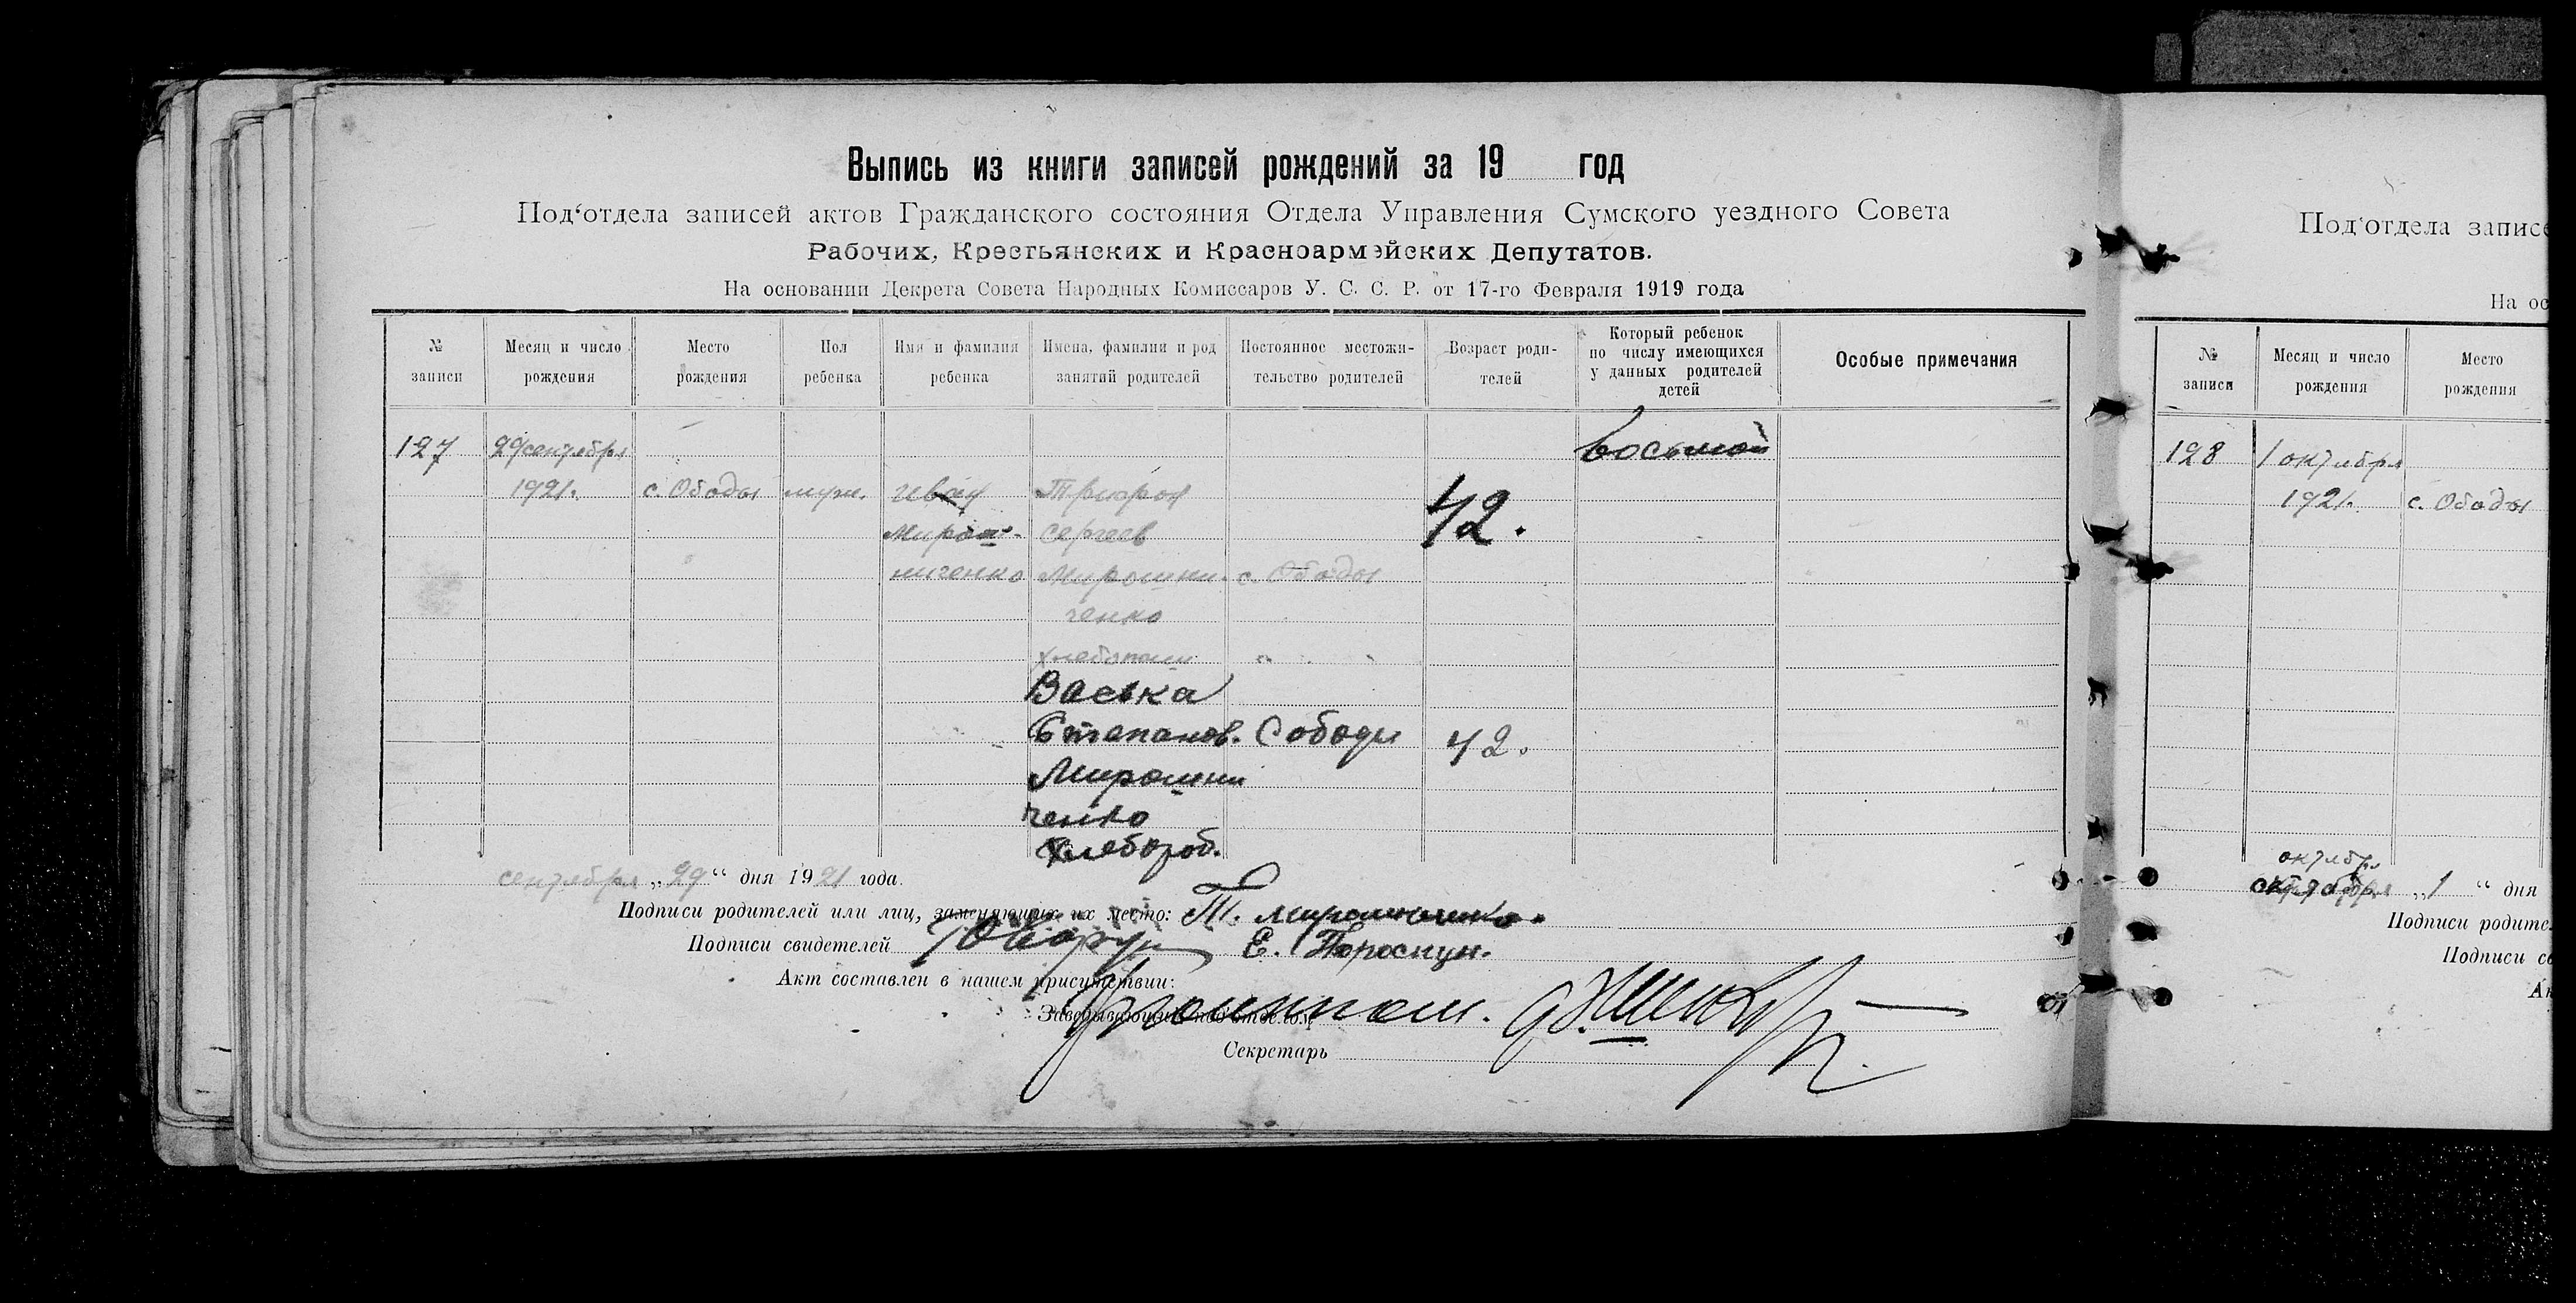 Выпись из книги записей рождений за 19 год
Под‘отдела записей актов Гражданского состояния Отдела Управления Сумского уездного Совета
Рабочих, Крестьянских и Красноармейских Депутатов.
На основании Декрета Совета Народных Комиссаров У. С. С. Р. от 17-го Февраля 1919 года
№ записи
Месяц и число рождения
Место рождения
Пол ребенка
Имя и фамилия ребенка
Имена, фамилии и род занятий родителей
Постоянное местожительство родителей
Возраст родителей
Который ребенок по числу имеющихся у данных родителей детей
Особые примечания
127
29 сентября
1921.
с. Ободы
муж.
Иван
Мирош-
ниченко
Сергеев
Мирошни-
ченко
хлебопаш
с. Ободы
42.
восьмой
Васька
Степанов.
Мирошни
ченко
хлебороб.
С ободы
42.
сентября „29“ дня 1921 года.
Подписи родителей или лиц, заменяющих их место: Т. Мирошниченко.
Подписи свидетелей
Е.
Акт составлен в нашем присутствии:
Заведывающий под‘отделом
Секретарь
Под‘отдела записе
На ос
№ записи
Месяц и число рождения
Место рождения
128
1 октября
1921.
с. Ободы
октябр
„1 “ дня
Подписи родите
Подписи св
Ак